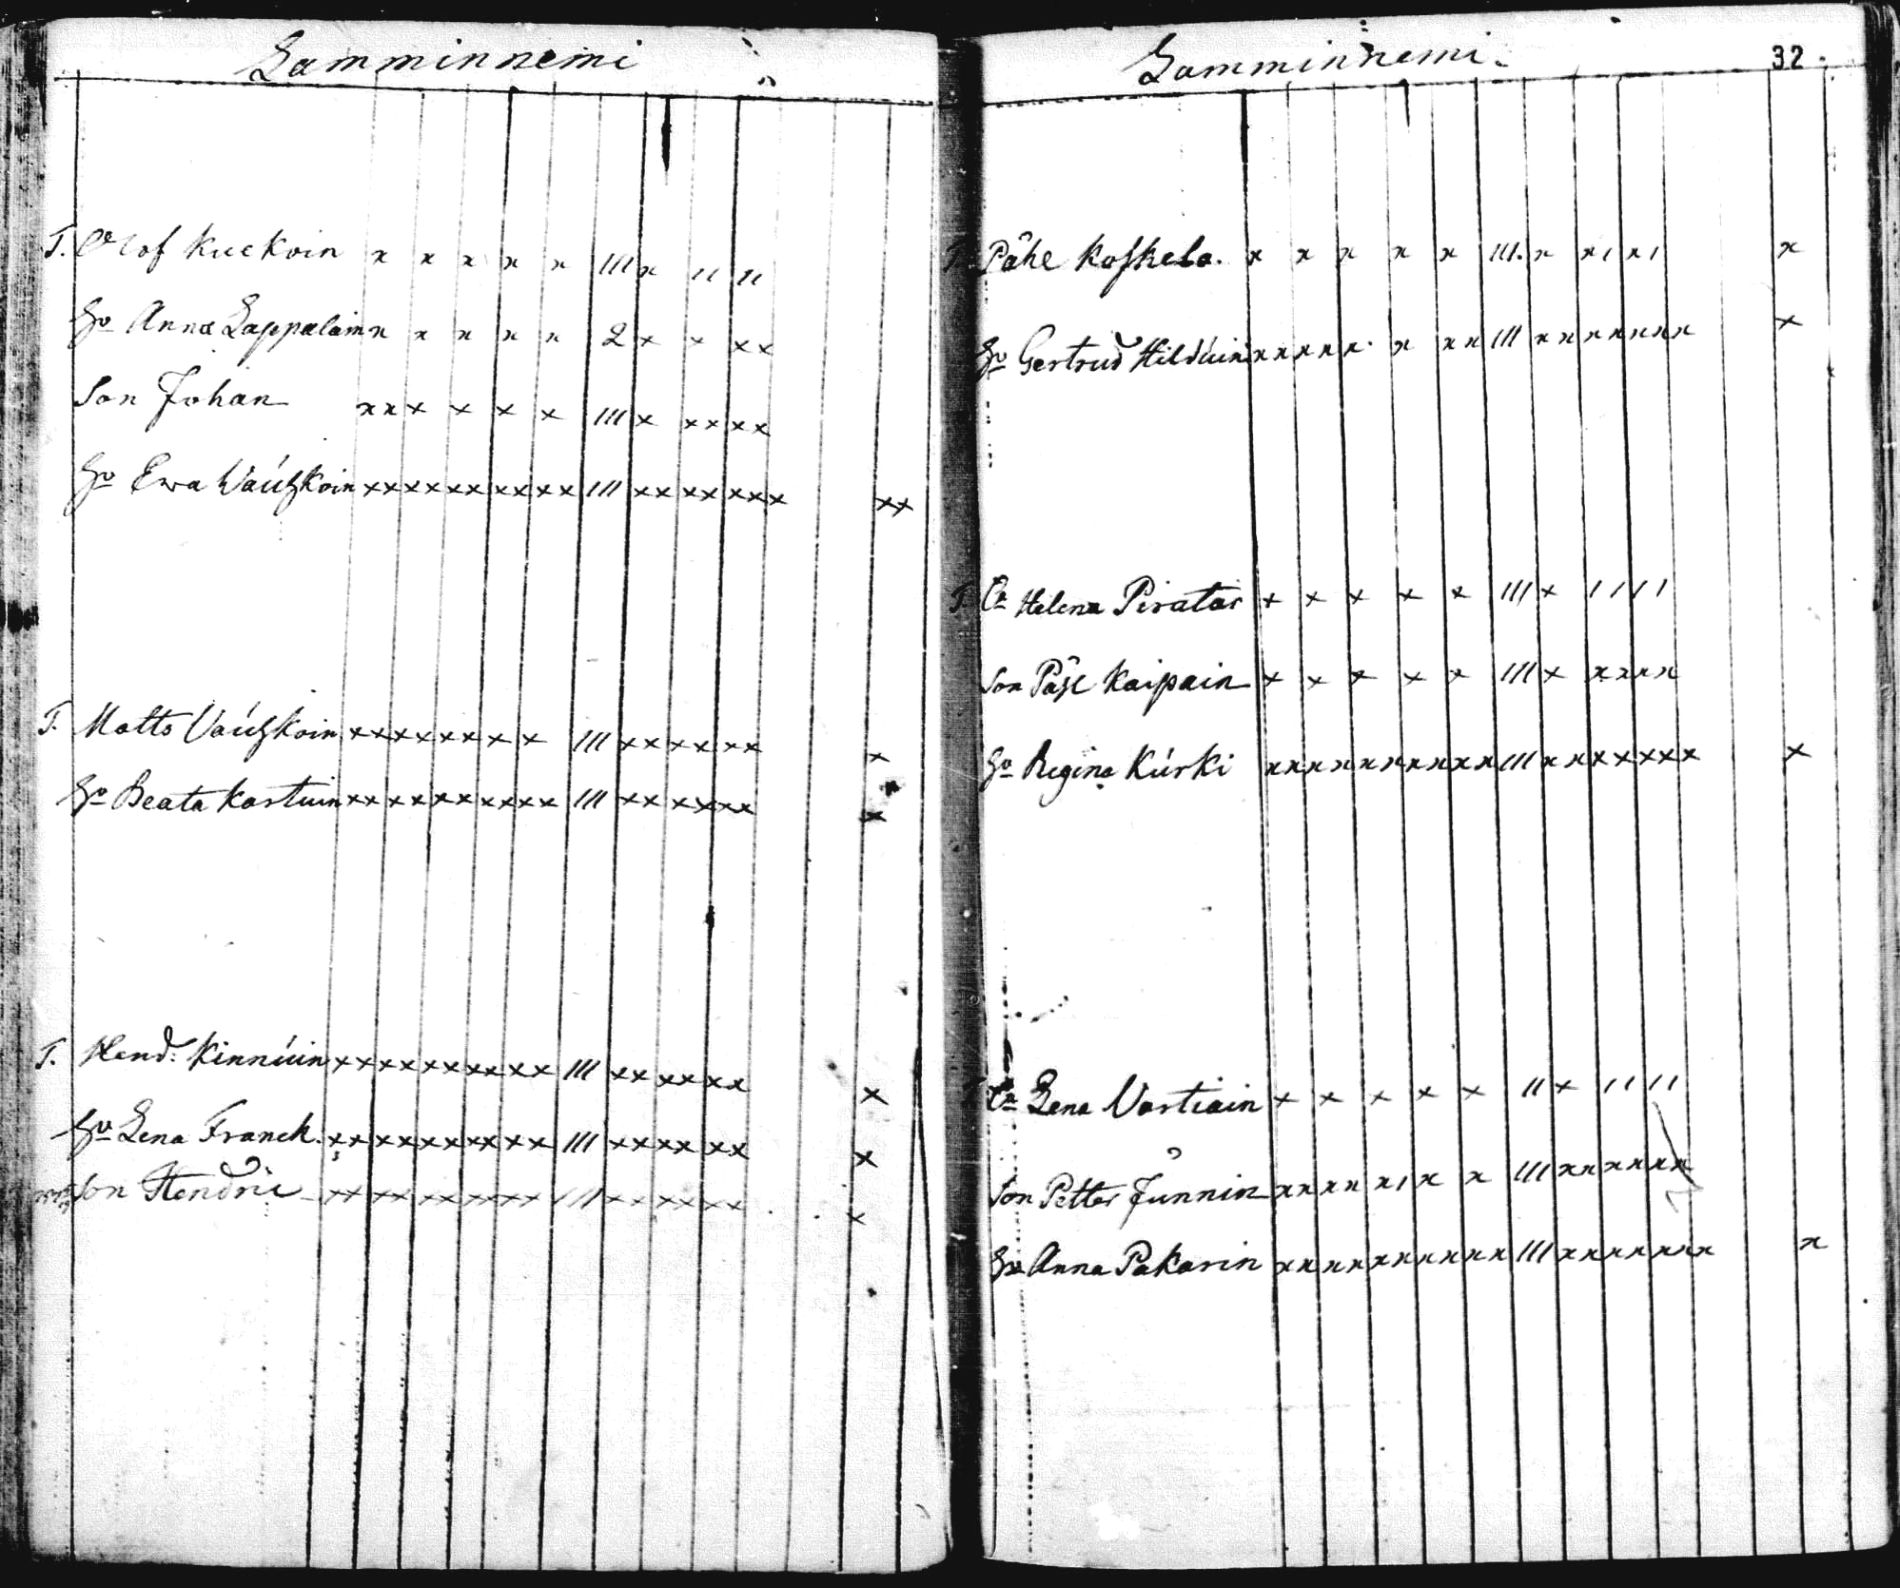 Lamminnemi
T. Olof Kuckoin x x x x x III x II II
Hu Anna Lappalain x x x x x 2 x x xx
Son Johan xx x x x x III x xx xx
Hu Ewa Wäútzkoin xx xx xx xx xx III xx xx xxx xx
T. Matts Väútzkoin xx xx xx x x III xx xx xx x
Hu Beata Kastuin xx xx xx xx xx III xx xx xx x
T. Hend: Kinnúin xx xx xx xx xx III xx xx xx x
Hu Lena Franck. xx xx xx xx xx III xx xx xx x
Son Hendric xx xx xx xx xx III xx xx xx x
Lamminnemi. 32
T. Påhl Koskela. x x x x x III. x x, x, x
Hu Gertrud Hildúin xx xx x x xx III xx xx xxx x
T. Ea Helena Piratar x x x x x III x II II
Son Påhl Kaipain x x x x x III x xx xx
Hu Regina Kúrki xx xx xx xx xx III xx xx xxx x
Ea Lena Vartiain x x x x x II x II II
Son Petter Junnin xx xx x, x x III xx xx xx
Hu Anna Pakarin xx xx xx xx xx III xx xx xxx x